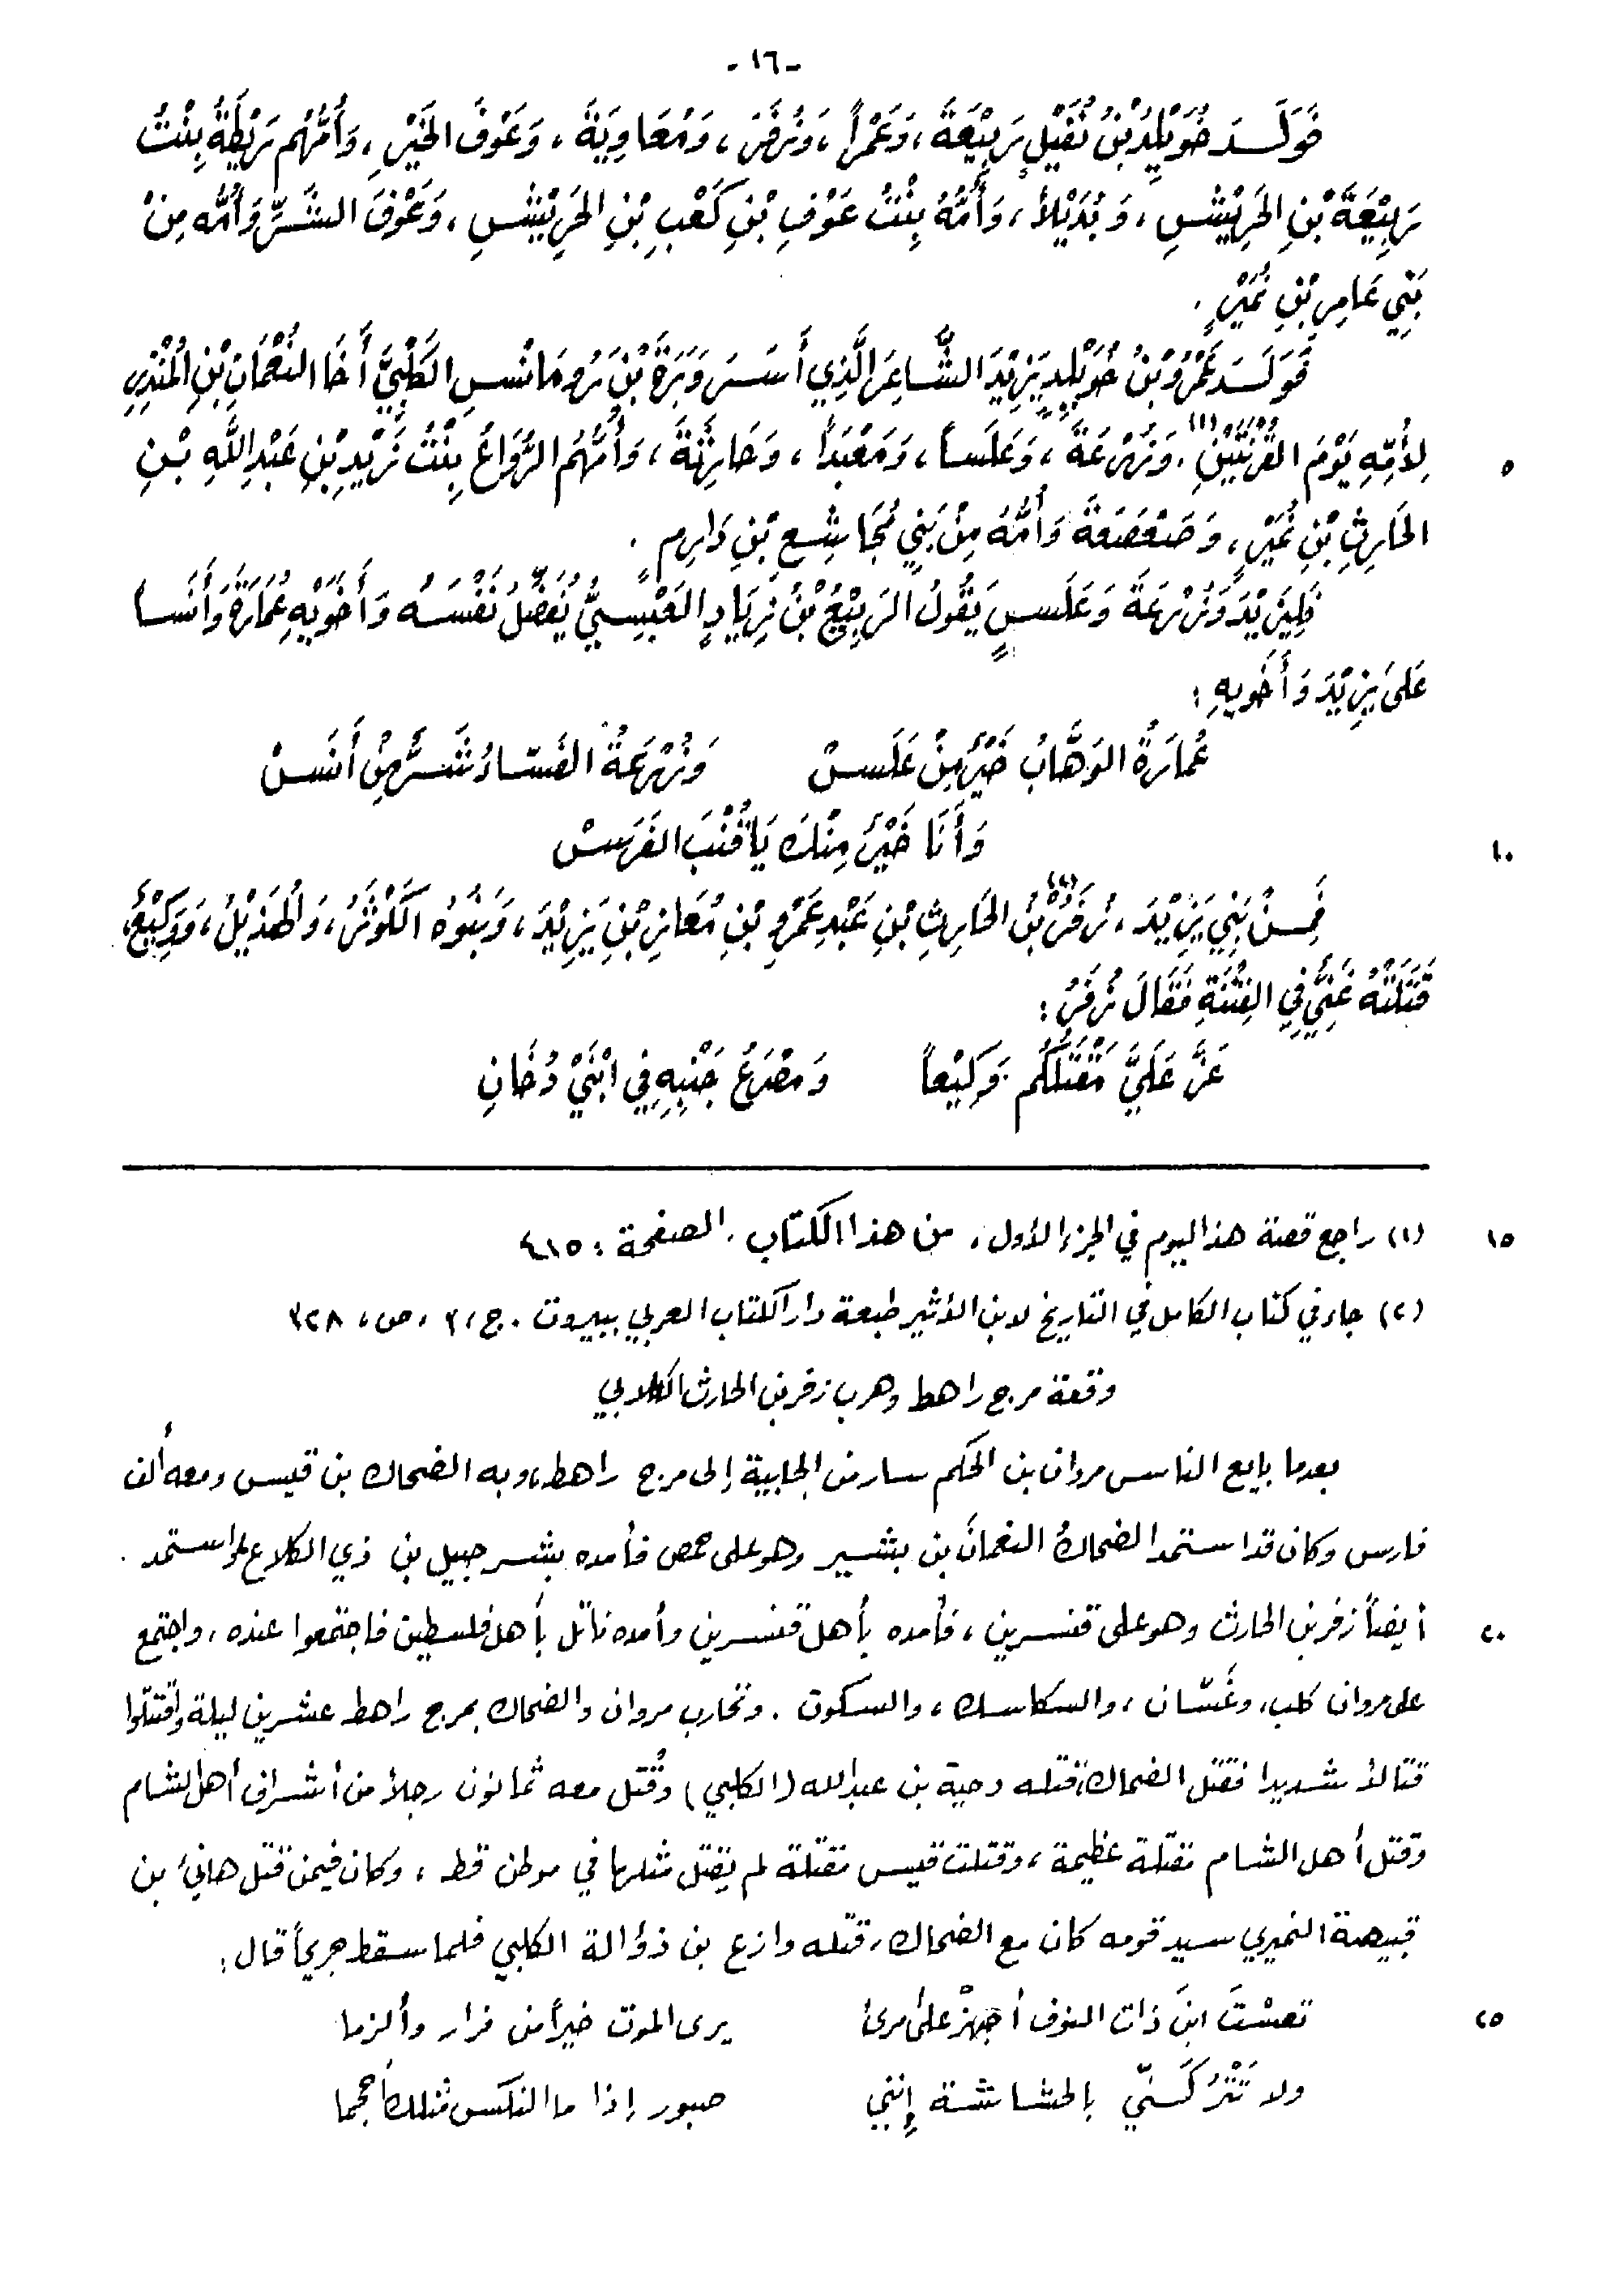 -١٦-
فَوَلَدَ خُوَيْلِدُ بْنُ نُفَيْلٍ رَبِيْعَةَ، وَعَمْراً، وَزُفَرَ، وَمُعَاوِيَةَ، وَعَوْفَ الخَيْرِ، وَأُمُّهُم رَيْطَةُ بِنْتُ
رَبِيْعَةَ بْنِ الحَرِيْشِ، وَبُدَيْلاً، وَأُمُّهُ بِنْتُ عَوْفِ بْنِ كَعْبِ بْنِ الحَرِيْشِ، وَعَوْفَ الشَّرِّ وَأُمُّه مِنْ
بَنِي عَامِرِ بْنِ نُمَيْرٍ.
فَوَلَدَ عَمْرُو بْنُ خُوَيْلِدٍ يَزِيْدَ الشَّاعِرَ الَّذِي أَسَرَ وَبَرَةَ بْنَ رُومَانْسِ الكَلْبِيَّ أَخَا النُّعْمَانِ بْنِ المُنْذِرِ
٥ لِأُمِّهِ يَوْمَ القُرْنَتَيْنِ (١)، وَزُرْعَةَ، وَعَلَساً، وَمَعْبَداً، وَحَارِثَةَ، وَأُمُّهُم الرُّوَاعُ بِنْتُ زَيْدِ بْنِ عَبْدِ اللَّهِ بْنِ
الحَارِثِ بْنِ نُمَيْرٍ، وَصَعْصَعَةَ وَأُمُّهُ مِنْ بَنِي مُجَاشِعِ بْنِ دَارِمٍ.
فَلِيَزِيْدَ وَزُرْعَةَ وَعَلَسٍ يَقُولُ الرَبِيْعُ بْنُ زِيَادٍ العَبْسِيُّ يُفَضِّلُ نَفْسَهُ وَأَخَوَيْهِ عُمَارَةَ وَأَنَساً
عَلَى يَزِيْدَ وَأَخَوِيهِ:
عُمارَةُ الوَهَّابُ خَيْرٌ مِنْ عَلَسْ وَزُرْعَةُ الفَسّاءُ شَرٌّ مِنْ أَنَسْ
١٠ وَأَنَا خَيْرٌ مِنْكَ يَا قُنْبَ الفَرَسْ
فَمِنْ بَنِي يَزِيْدَ، زُفَرُ (٢) بْنُ الحَارِثِ بْنِ عَبْدِ عَمْرِو بْنِ مُعَازِ بْنِ يَزِيْدَ، وَبَنُوه الكَوْثَرُ، وَالهُذَيْلُ، وَوَكِيْعُ،
قَتَلَتْهُ غَنِيٌّ فِي الفِتْنَةِ فَقَالَ زُفَرُ:
عَزَّ عَلَيَّ مَقْتَلُكُم وَكِيْعاً وَمَصْرَعُ جَنْبِهِ فِي ابْنَيْ دُخَانِ
١٥ (١) راجع قصة هذا اليوم في الجزء الأول، من هذا الكتاب. الصفحة: ٤١٥
(٢) جاء في كتاب الكامل في التاريخ لابن الأثير طبعة دار الكتاب العربي ببيروت. ج، ٣، ص، ٣٢٨
وقعة مرج راهط وهرب زفر بن الحارث الكلابي
بعدما بايع الناس مروان بن الحكم سار من الجابية إلى مرج راهط، وبه الضحاك بن قيس ومعه ألف
فارس وكان قد استمد الضحاكُ النعمانَ بن بشير وهو على حمص فأمده بشرحبيل بن ذي الكلاع واستمد
٢٠ أيضاً زفر بن الحارث وهو على قنسرين، فأمده بأهل قنسرين وأمده ناتل بأهل فلسطين فاجتمعوا عنده، واجتمع
على مروان كلب، وغَسّان، والسكاسك، والسكون. وتحارب مروان والضحاك بمرج راهط عشرين ليلة واقتتلوا
قتالاً شديدا فقتل الضحاك، قتله دحية بن عبدالله (الكلبي) وقُتل معه ثمانون رجلاً من أشراف أهل الشام
وقتل أهل الشام مقتلة عظيمة، وقتلت قيس مقتلة لم يقتل مثلها في موطن قط، وكان فيمن قتل هانئ بن
قبيصة النميري سيد قومه كان مع الضحاك، قتله وازع بن ذؤالة الكلبي فلما سقط جريحاً قال:
٢٥ تعسْتَ ابنَ ذات النوف أجهزْ على امرئ يرى الموت خيراً من فرار وألزما
ولا تَتْرُكَنّي بالحشاشة إنني صبور إذا ما النكس مثلك أحجما